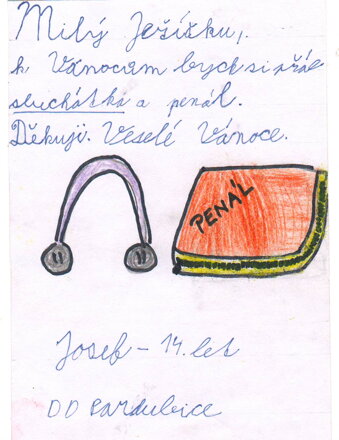 Milý Ježíšku,
k Vánocům bych si přál
sluchátka a penál.
Děkuji. Veselé Vánoce.
PENÁL
Josef - 14. let
DD Pardubice